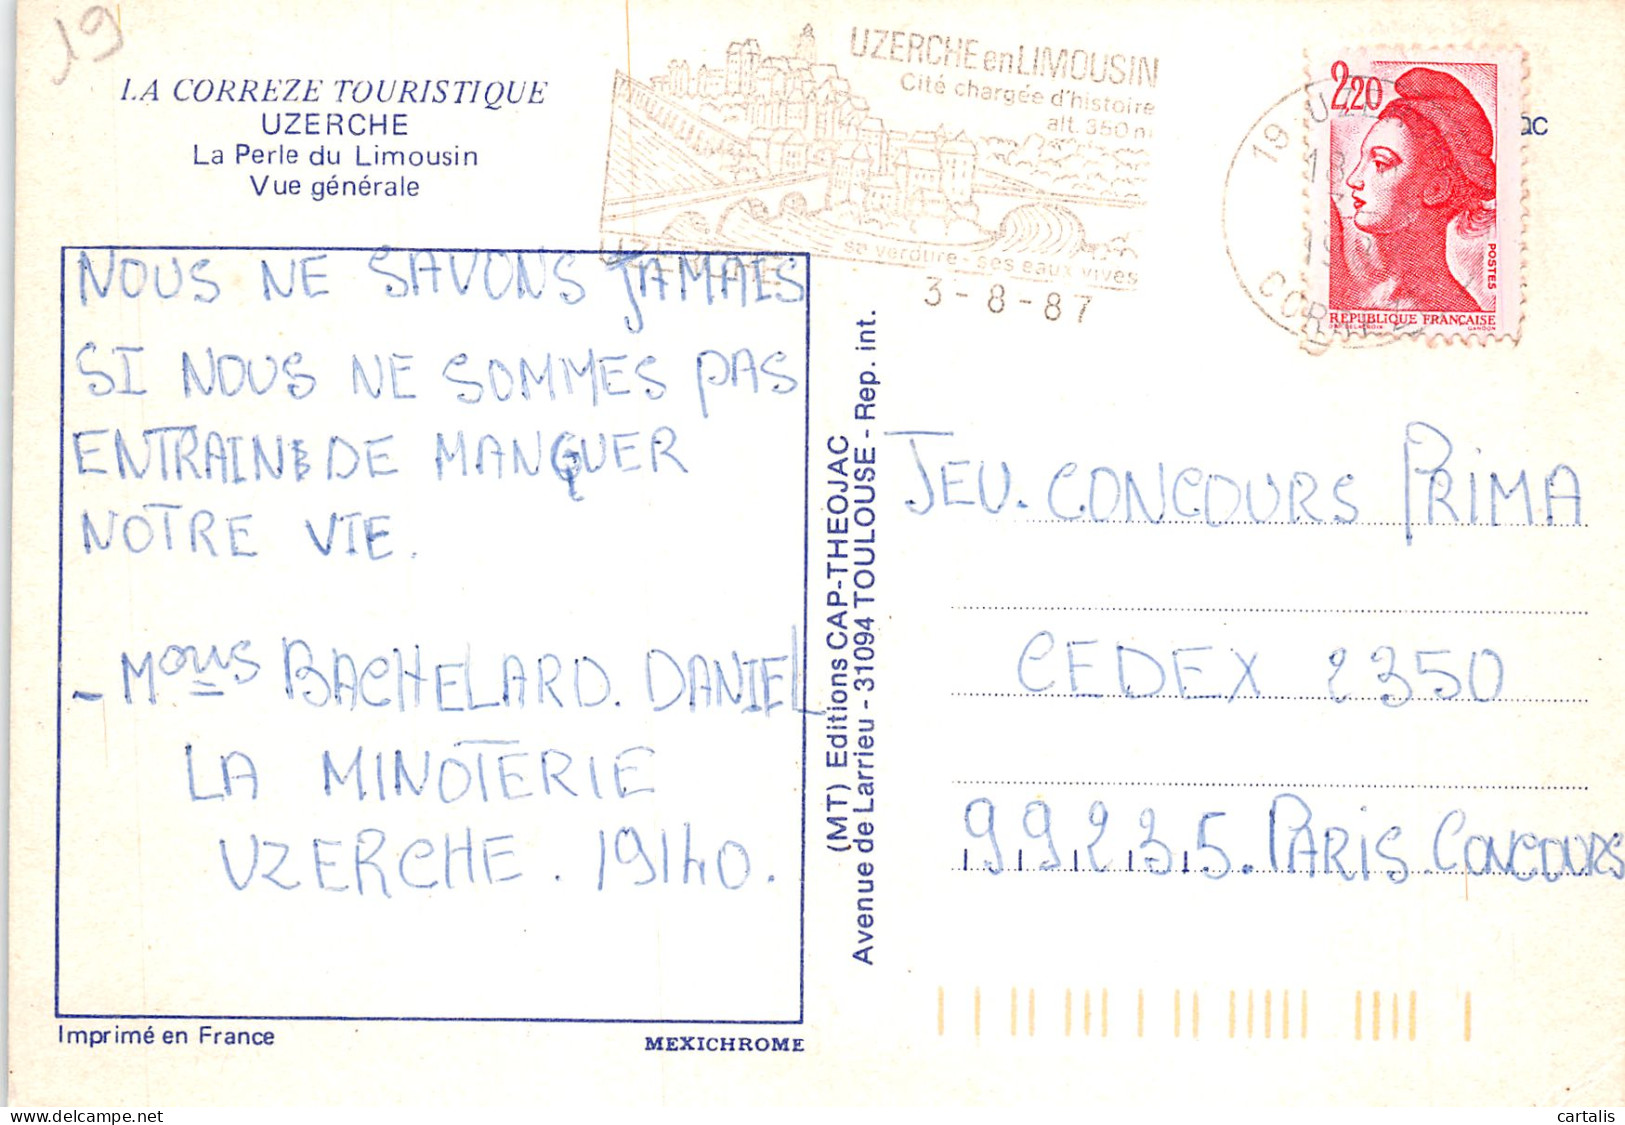 19
LA CORREZE TOURISTIQUE
UZERCHE
La Perle du Limousin
Vue générale
UZERCHE en LIMOUSIN
Cité chargée d'histoire
alt. 350 m
se verdure - ses eaux vives
UZERCHE
3-8-87
19 UZE
18
CORREZE
2,20
POSTES
RÉPUBLIQUE FRANÇAISE
GANDON
ac
NOUS NE SAVONS JAMAIS
SI NOUS NE SOMMES PAS
ENTRAIN DE MANQUER
NOTRE VIE.
- Mous BACHELARD. DANIEL
LA MINOTERIE
UZERCHE. 19140.
(MT) Editions CAP-THEOJAC
Avenue de Larrieu - 31094 TOULOUSE - Rep. int.
JEU. CONCOURS PRIMA
CEDEX 2350
99235. PARIS. CONCOURS
Imprimé en France
MEXICHROME
cartalis